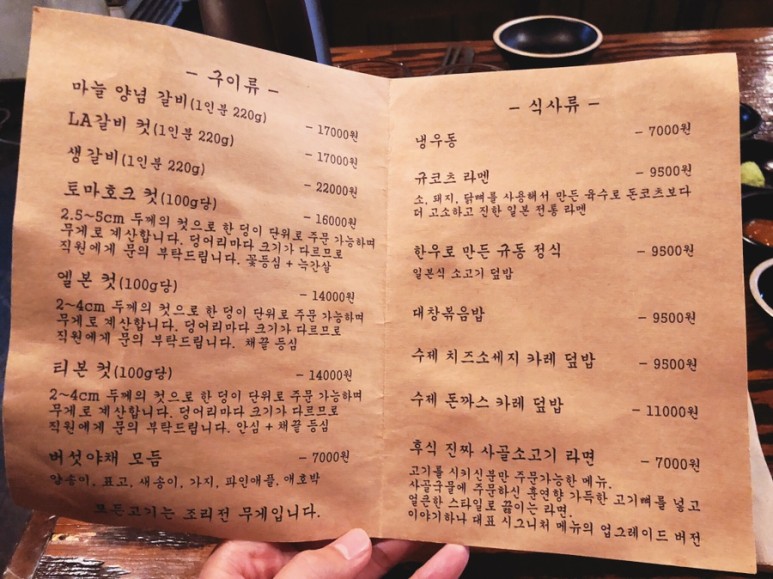 - 구이류 -
마늘 양념 갈비(1인분 220g) - 17000원
LA갈비 컷(1인분 220g) - 17000원
생갈비(1인분 220g) - 22000원
토마호크 컷(100g당) - 16000원
2.5~5cm 두께의 컷으로 한 덩이 단위로 주문 가능하며
무게로 계산합니다. 덩어리마다 크기가 다르므로
직원에게 문의 부탁드립니다. 꽃등심 + 늑간살
엘본 컷(100g당) - 14000원
2~4cm 두께의 컷으로 한 덩이 단위로 주문 가능하며
무게로 계산합니다. 덩어리마다 크기가 다르므로
직원에게 문의 부탁드립니다. 채끝 등심
티본 컷(100g당) - 14000원
2~4cm 두께의 컷으로 한 덩이 단위로 주문 가능하며
무게로 계산합니다. 덩어리마다 크기가 다르므로
직원에게 문의 부탁드립니다. 안심 + 채끝 등심
버섯야채 모듬 - 7000원
양송이, 표고, 새송이, 가지, 파인애플, 애호박
모든고기는 조리전 무게입니다.
- 식사류 -
냉우동 - 7000원
규코츠 라멘 - 9500원
소, 돼지, 닭뼈를 사용해서 만든 육수로 돈코츠보다
더 고소하고 진한 일본 전통 라멘
한우로 만든 규동 정식 - 9500원
일본식 소고기 덮밥
대창볶음밥 - 9500원
수제 치즈소세지 카레 덮밥 - 9500원
수제 돈까스 카레 덮밥 - 11000원
후식 진짜 사골소고기 라면 - 7000원
고기를 시키신분만 주문가능한 메뉴.
사골국물에 주문하신 훈연향 가득한 고기뼈를 넣고
얼큰한 스타일로 끓이는 라면.
이야기하나 대표 시그니처 메뉴의 업그레이드 버전